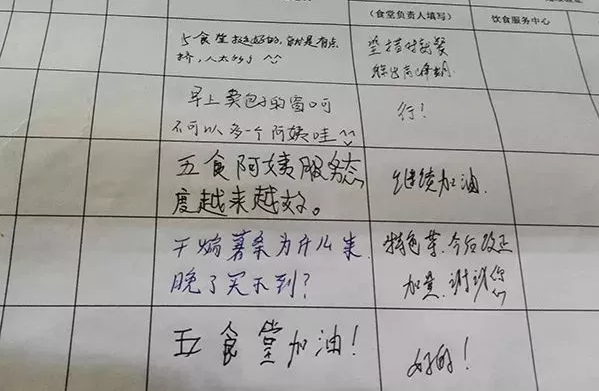 (食堂负责人填写)
饮食服务中心
5食堂挺好的,就是有点
挤,人太多了^^
坚持错时就餐
行!
早上卖包子的窗口可
不可以多一个阿姨哇^^
五食阿姨服务态
度越来越好。
继续加油.
干煸薯条为什么来
晚了买不到?
特色菜.今后改正
加量.谢谢您
五食堂加油!
好的!